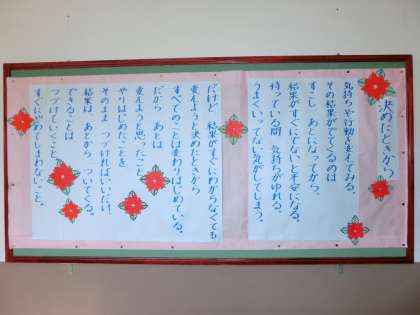 決めたときから
気持ちや行動を変えてみる。
その結果がでてくるのは
すこし あとになってから。
結果がすぐにでないと不安になる。
待っている間 気持ちがゆれる。
うまくいってない気がしてしまう。
だけど 結果がすぐにわからなくても
変えようと決めたときから
すべてのことは変わりはじめている。
だから あとは
変えようと思ったこと、
やりはじめたことを
そのまま つづければいいだけ。
結果は あとから ついてくる。
できることは
つづけていくこと。
すぐにやめてしまわないこと。